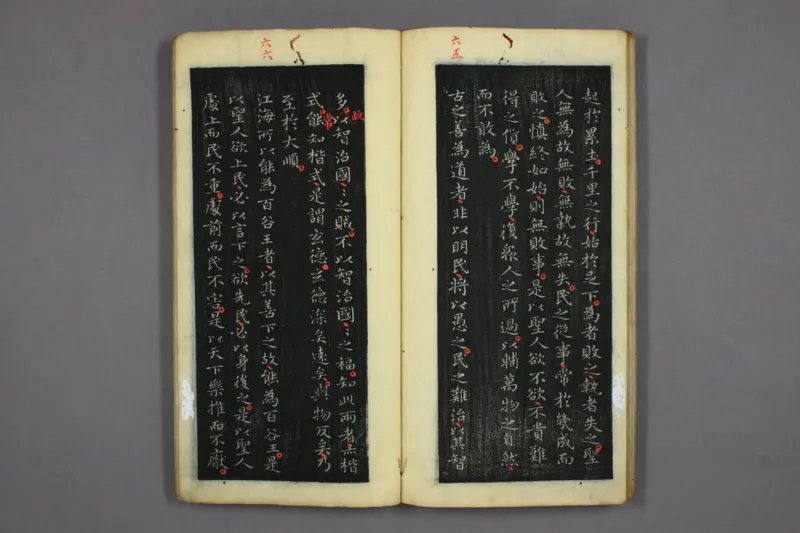 六五
起於累土千里之行始於足下為者敗之執者失之聖
人無為故無敗無執故無失民之從事常於幾成而
敗之慎終如始則無敗事是以聖人欲不欲不貴難
得之貨學不學復衆人之所過以輔萬物之自然
而不敢為
古之善為道者非以明民將以愚之民之難治以其智
六六
多故以智治國〻之賊不以智治國〻之福知此兩者亦楷
式常能知楷式是謂玄德玄德深矣遠矣與物反矣乃
至於大順
江海所以能為百谷王者以其善下之故能為百谷王是
以聖人欲上民必以言下之欲先民必以身後之是以聖人
處上而民不重處前而民不害是以天下樂推而不厭